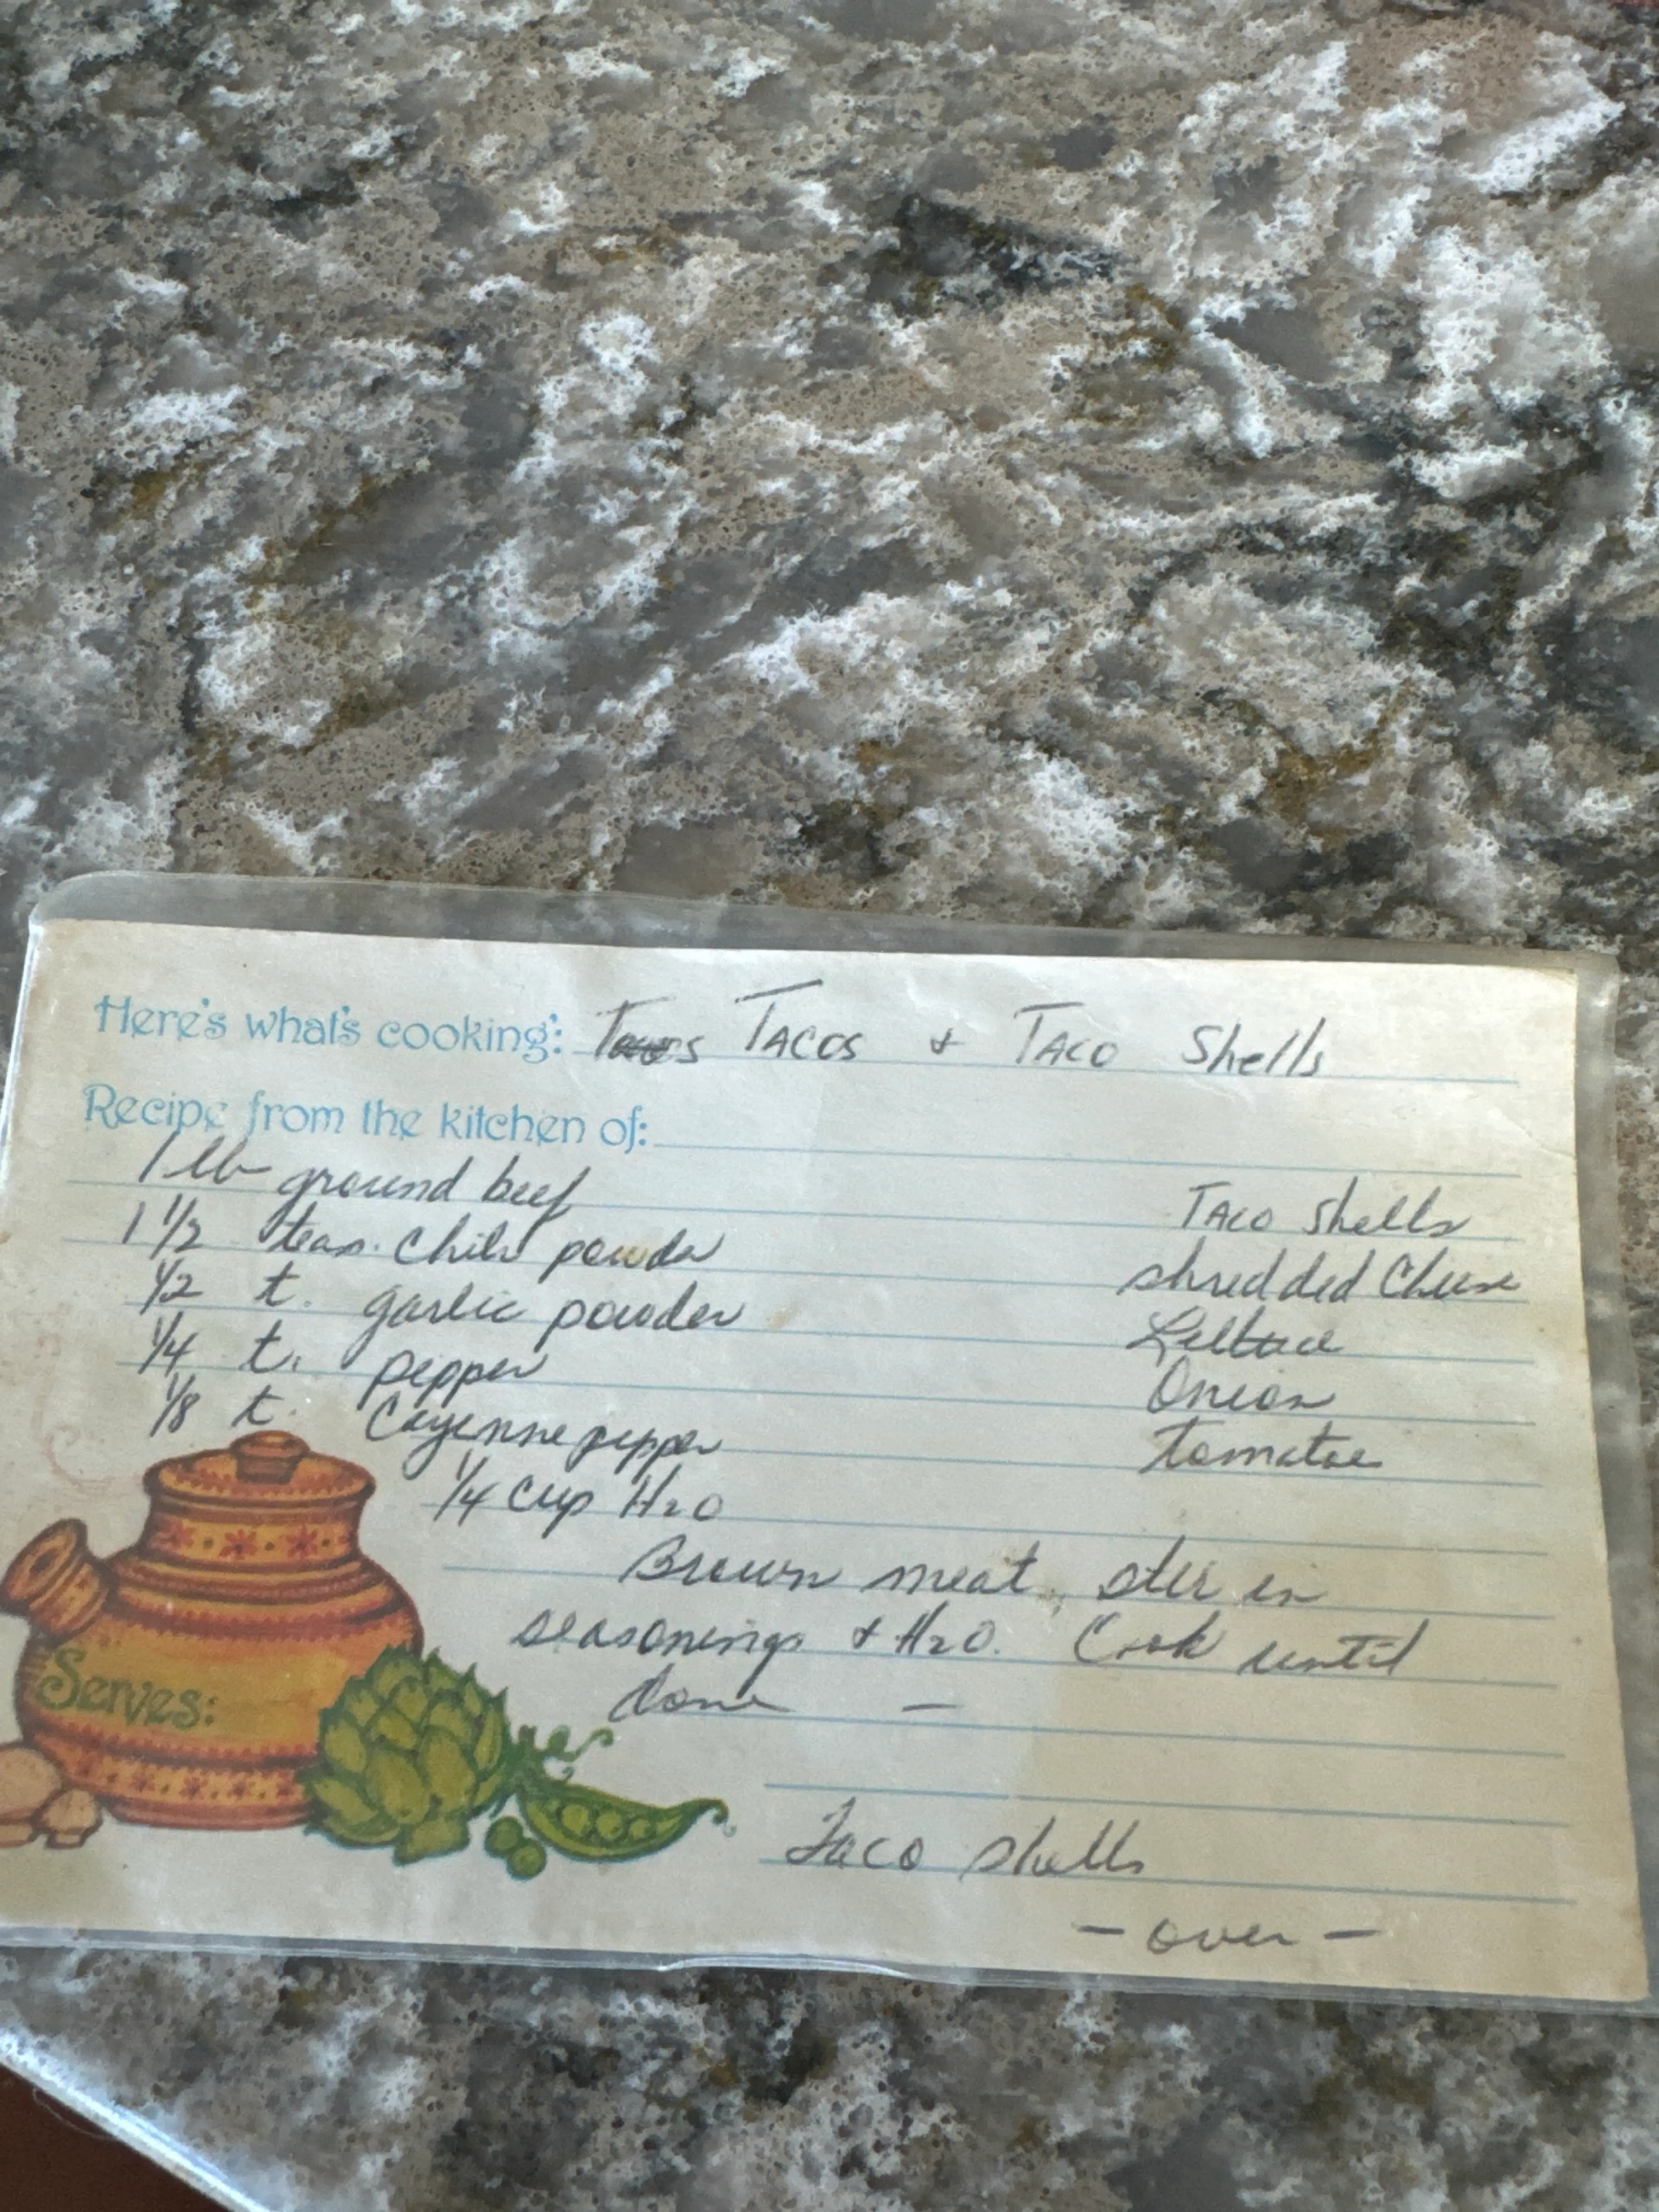 Here's what's cooking: Tacos TACOS & TACO Shells
Recipe from the kitchen of:
1 lb ground beef
1 1/2 teas. Chili powder
1/2 t. garlic powder
1/4 t. pepper
1/8 t. Cayenne pepper
1/4 cup H2O
TACO shells
shredded Cheese
Lettuce
Onion
tomatoe
Brown meat, stir in
seasonings & H2O. Cook until
done —
Serves:
Taco shells
- over -